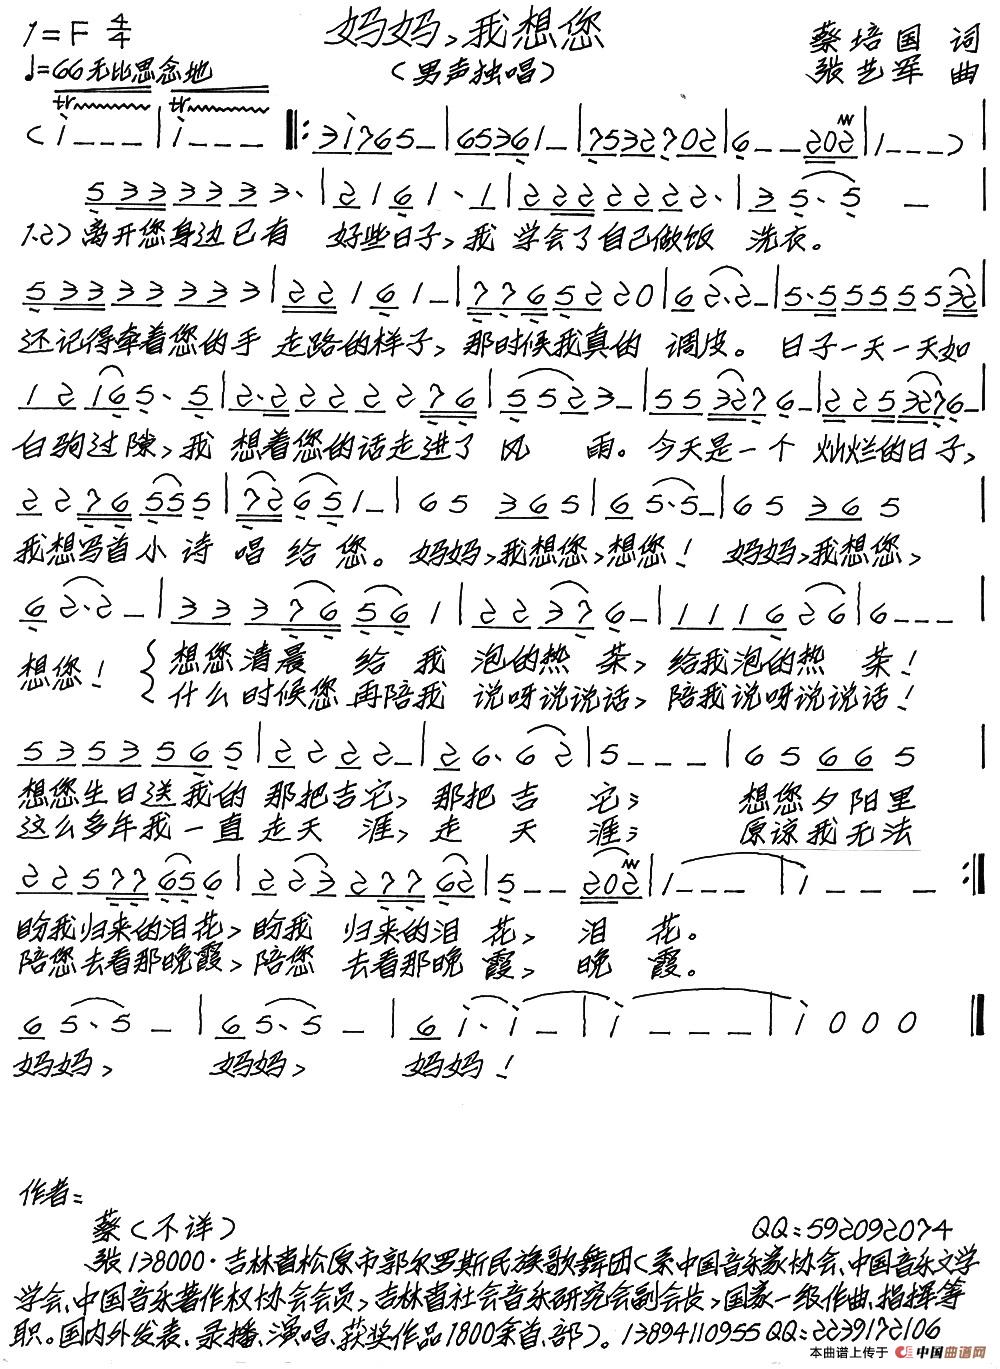 妈妈，我想您
1=F 4/4
蔡培国 词
♩=66无比思念地
（男声独唱）
张艺军 曲
tr tr
( i - - - | i - - - ‖: 3 i 7 6 5 - | 6 5 3 6 1 - | 7 5 3 2 7 0 2 | 6 - - 2 0 2 | 1 - - - ) |
5 3 3 3 3 3 3 3· | 2 1 6 1· 1 | 2 2 2 2 2 2 2 2· | 3 5· 5 - |
1.2）离开您身边已有 好些日子，我 学会了自己做饭 洗衣。
5 3 3 3 3 3 3 3 3 | 2 2 1 6 1 - | 7 7 6 5 2 2 0 | 6 2·2 - | 5·5 5 5 5 5 3 2 |
还记得牵着您的手 走路的样子，那时候我真的 调皮。 日子一天一天如
1 2 1 6 5· 5 | 2·2 2 2 2 2 7 6 | 5 5 2 3 - | 5 5 3 2 7 6 - | 2 2 5 3 2 7 6 - |
白驹过隙，我 想着您的话走进了 风 雨。今天是一个 灿烂的日子，
2 2 7 6 5 5 5 | 7 2 6 5 1 - | 6 5 3 6 5 | 6 5·5 - | 6 5 3 6 5 |
我想写首小诗 唱给您。妈妈，我想您，想您！ 妈妈，我想您，
6 2·2 - | 3 3 3 7 6 5 6 1 | 2 2 3 7 6 - | 1 1 1 6 2 6 | 6 - - - |
想您！ 想您清晨 给我 泡的热 茶，给我泡的热 茶！
什么时候您再陪我 说呀说说话，陪我说呀说说话！
5 3 5 3 5 6 5 | 2 2 2 2 - | 2 6·6 2 | 5 - - - | 6 5 6 6 5 |
想您生日送我的 那把吉它，那把吉 它； 想您夕阳里
这么多年我一直走天 涯，走 天 涯； 原谅我无法
2 2 5 7 7 6 5 6 | 2 2 3 2 7 7 6 2 | 5 - - 2 0 2 | 1 - - - | 1 - - - :‖
盼我归来的泪花，盼我 归来的泪 花， 泪 花。
陪您去看那晚霞，陪您 去看那晚 霞， 晚 霞。
6 5·5 - | 6 5·5 - | 6 i·i - | i - - - | i 0 0 0 ‖
妈妈， 妈妈， 妈妈！
作者：
蔡（不详）
QQ：592092074
张138000·吉林省松原市郭尔罗斯民族歌舞团（系中国音乐家协会、中国音乐文学
学会、中国音乐著作权协会会员，吉林省社会音乐研究会副会长，国家一级作曲、指挥等
职。国内外发表、录播、演唱、获奖作品1800余首、部）。13894110955 QQ：2239172106
本曲谱上传于 中国曲谱网